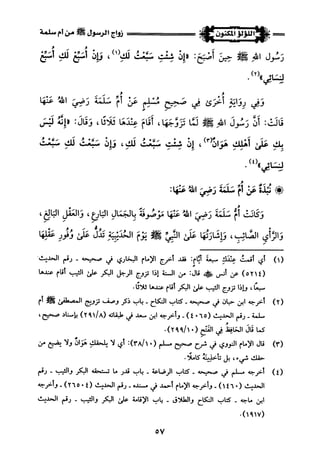 اللؤلؤ المكنون
زواج الرسول ﷺ من أم سلمة
رَسُولُ اللهِ ﷺ حِينَ أَصْبَحَ: «إِنْ شِئْتِ سَبَّعْتُ لَكِ(١)، وَإِنْ أُسَبِّعْ لَكِ أُسَبِّعْ
لِنِسَائِي»(٢).
وَفِي رِوَايَةٍ أُخْرَى فِي صَحِيحِ مُسْلِمٍ عَنْ أُمِّ سَلَمَةَ رَضِيَ اللهُ عَنْهَا
قَالَتْ: أَنَّ رَسُولَ اللهِ ﷺ لَمَّا تَزَوَّجَهَا، أَقَامَ عِنْدَهَا ثَلَاثًا، وَقَالَ: «إِنَّهُ لَيْسَ
بِكِ عَلَى أَهْلِكِ هَوَانٌ(٣)، إِنْ شِئْتِ سَبَّعْتُ لَكِ، وَإِنْ سَبَّعْتُ لَكِ سَبَّعْتُ
لِنِسَائِي»(٤).
نُبْذَةٌ عَنْ أُمِّ سَلَمَةَ رَضِيَ اللهُ عَنْهَا:
وَكَانَتْ أُمُّ سَلَمَةَ رَضِيَ اللهُ عَنْهَا مَوْصُوفَةً بِالجَمَالِ البَارِعِ، وَالعَقْلِ البَالِغِ،
وَالرَّأْيِ الصَّائِبِ، وَإِشَارَتُهَا عَلَى النَّبِيِّ ﷺ يَوْمَ الحُدَيْبِيَةِ تَدُلُّ عَلَى وُفُورِ عَقْلِهَا
(١) أي أقمتُ عِنْدَكِ سبعةَ أيَّامٍ: فقد أخرج الإمام البخاري في صحيحه - رقم الحديث
(٥٢١٤) عن أنس ﷺ قال: من السنة إذا تزوج الرجل البكر على الثيب أقام عندها
سبعًا، وإذا تزوج الثيب على البكر أقام عندها ثلاثًا.
(٢) أخرجه ابن حبان في صحيحه - كتاب النكاح - باب ذكر وصف تزويج المصطفى ﷺ أم
سلمة - رقم الحديث (٤٠٦٥) - وأخرجه ابن سعد في طبقاته (٢٩١/٨) بإسناد صحيح،
كما قَالَ الحَافِظُ فِي الفَتْحِ (٢٩٩/١٠).
(٣) قال الإمام النووي في شرح صحيح مسلم (٣٨/١٠): أي لا يلحقك هَوَانٌ ولا يضيع من
حقك شيء، بل تأخذينَهُ كاملًا.
(٤) أخرجه مسلم في صحيحه - كتاب الرضاعة - باب قدر ما تستحقه البكر والثيب - رقم
الحديث (١٤٦٠) - وأخرجه الإمام أحمد في مسنده - رقم الحديث (٢٦٥٠٤) - وأخرجه
ابن ماجه - كتاب النكاح والطلاق - باب الإقامة على البكر والثيب - رقم الحديث
(١٩١٧).
٥٧